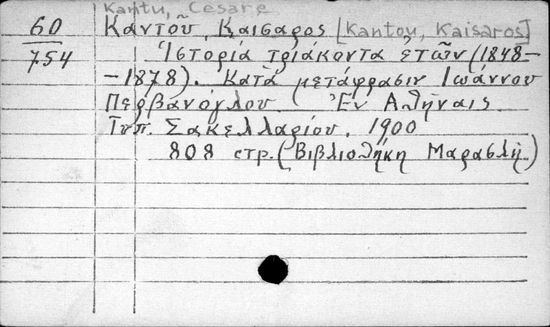 Kantu, Cesare
60 Καντοῦ, Καισαρος [Kantou, Kaisaros]
754 Ἱστορία τριάκοντα ἐτῶν (1848-
-1878). Κατὰ μετάφρασιν Ἰωάννου
Περβανόγλου Ἐν Ἀθήναις
Τυπ. Σακελλαρίου. 1900
808 στρ. (Βιβλιοθήκη Μαρασλῆ.)